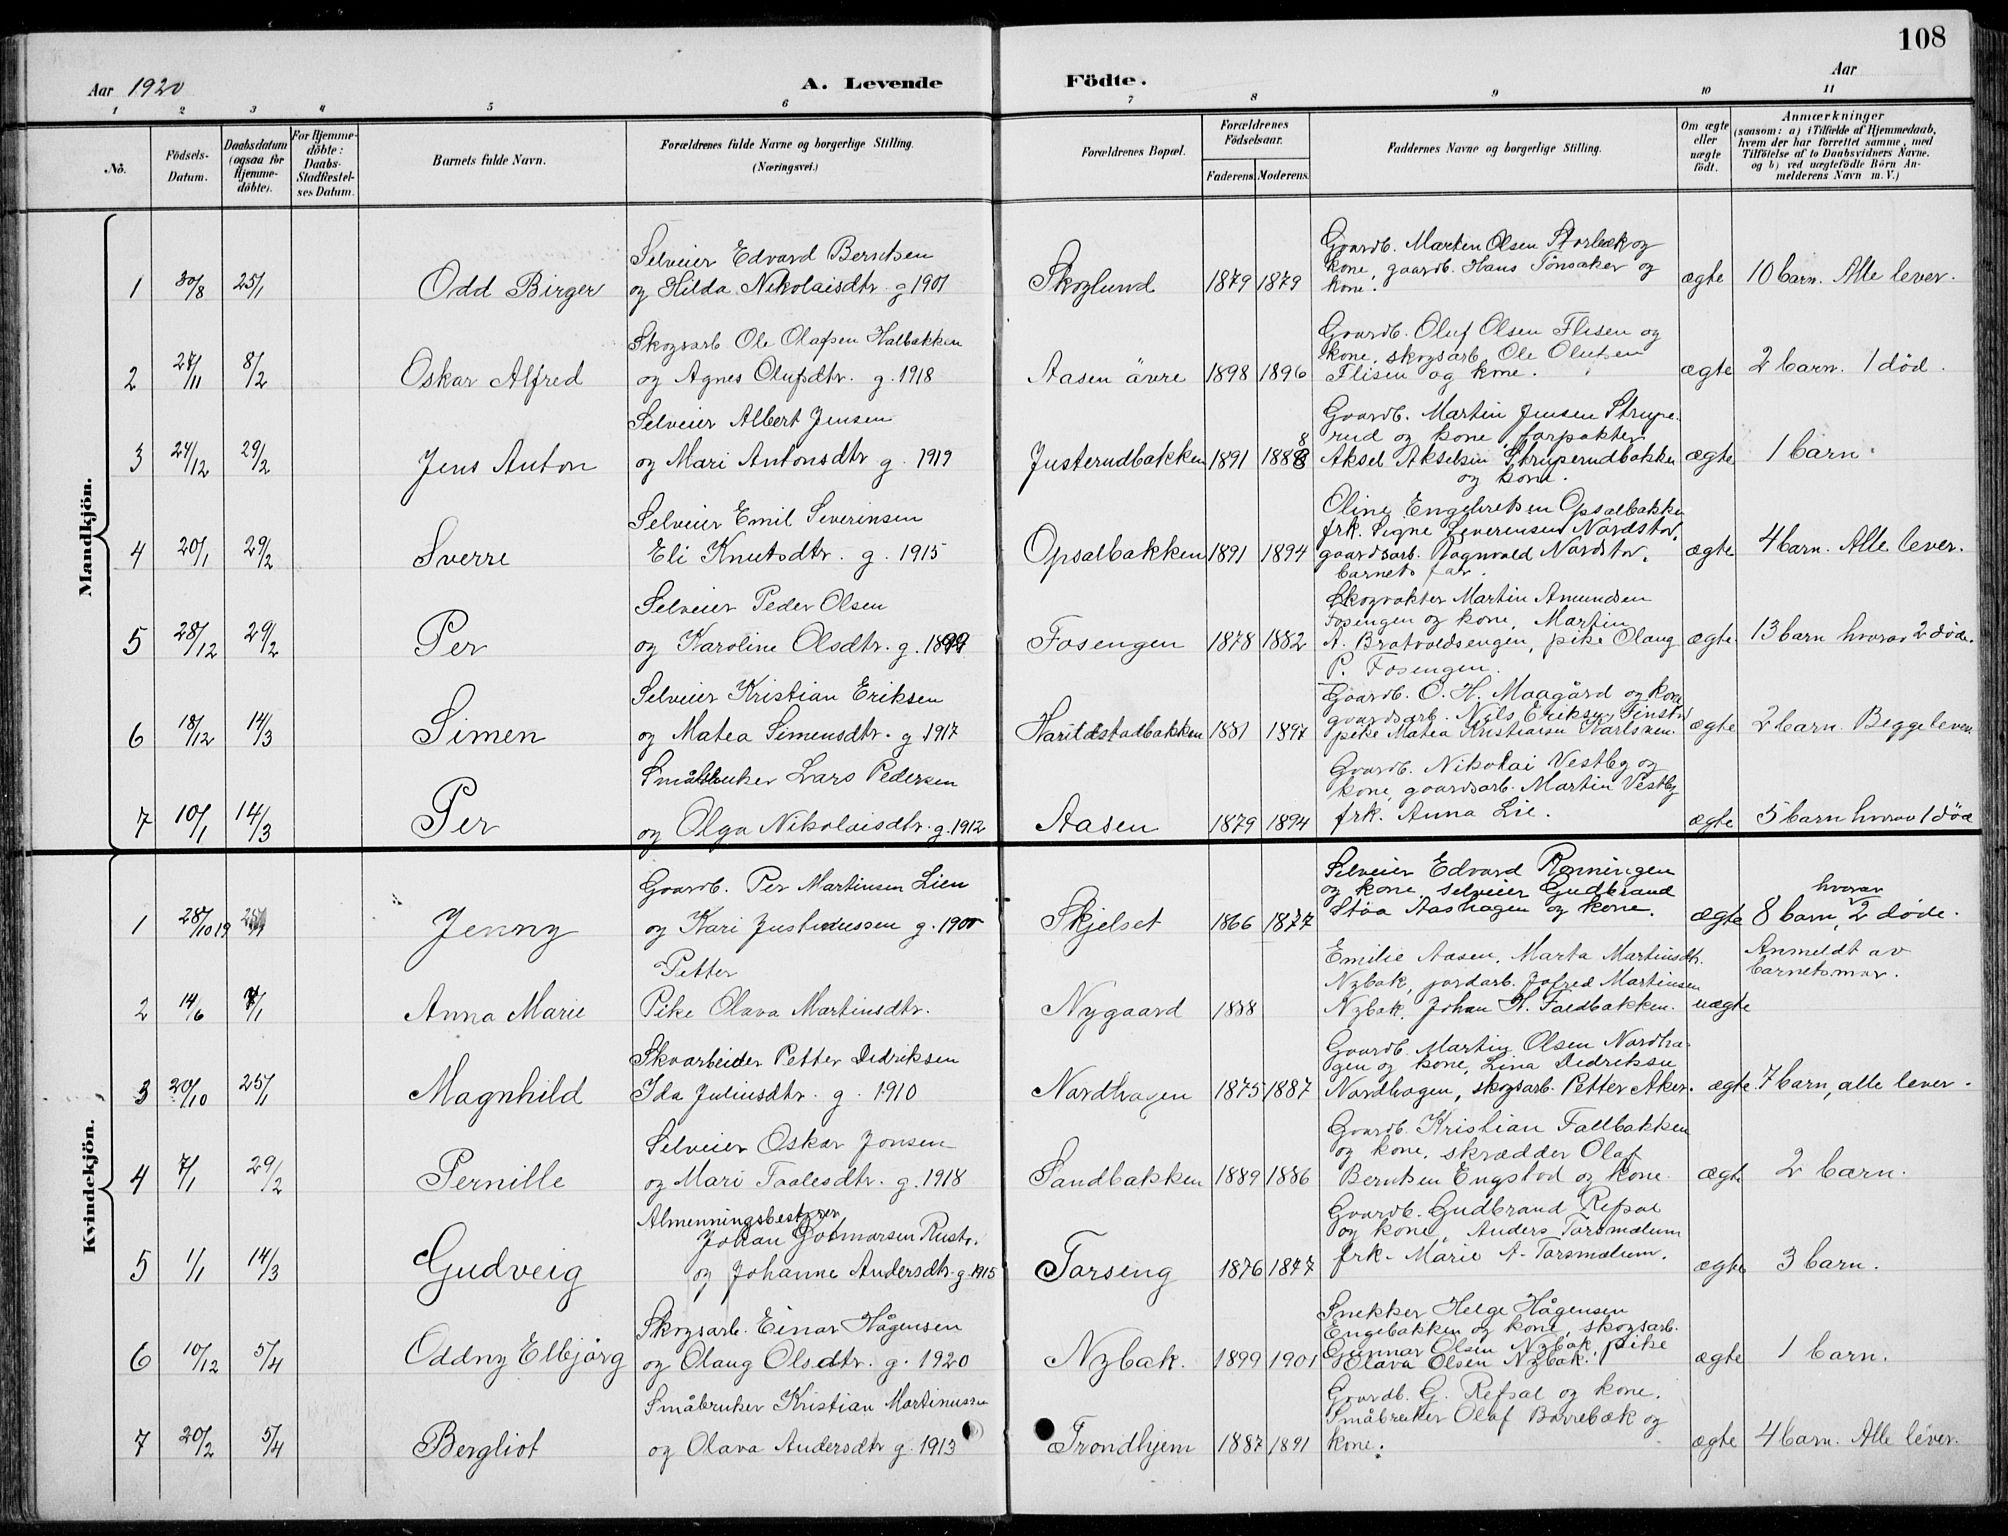 108
Aar 1920
A. Levende Födte.
Aar
1 2 3 4 5 6 7 8 9 10 11
No.
Födsels-Datum.
Daabsdatum (ogsaa for Hjemme-döbte).
For Hjemme-döbte: Daabs-Stadfæstel-ses Datum.
Barnets fulde Navn.
Forældrenes fulde Navne og borgerlige Stilling.
(Næringsvei.)
Forældrenes Bopæl.
Forældrenes Födselsaar.
Faderens. Moderens.
Faddernes Navne og borgerlige Stilling.
Om ægte eller uægte födt.
Anmærkninger
(saasom: a) i Tilfælde af Hjemmedaab,
hvem der har forrettet samme, med
Tilföielse af to Daabsvidners Navne.
og b) ved uægtefödte Börn An-
melderens Navn m. V.)
Mandkjön.
Selveier Edvard Berntsen
1 30/8 25/1 Odd Birger og Hilda Nikolaisdtr. g 1901 Skoglund 1879 1879
Gaardb. Martin Olsen Storbæk og
kone, gaardb. Hans Tönsaker og
kone.
ægte 10 barn. Alle lever.
Skogsarb. Ole Olafsen Halbakken
2 27/11 8/2 Oskar Alfred og Agnes Olufsdtr. g. 1918 Aasen övre 1898 1896
Gaardb. Oluf Olsen Flisen og
kone, skogsarb. Ole Olufsen
Flisen og kone.
ægte 2 barn. 1 död.
Selveier Albert Jensen
3 24/12 29/2 Jens Anton og Mari Antonsdtr g 1919 Justerudbakken 1891 1888
Gaardb. Martin Jensen Strupe-
rud og kone, forpakter
Aksel Akselsen Struperudbakken
og kone.
ægte 1 barn.
Selveier Emil Severinsen
4 20/1 29/2 Sverre Eli Knutsdtr. g. 1915 Opsalbakken 1891 1894
Oline Engebretsen Opsalbakken
frk. Signe Severensen Nordstov,
gaardsarb. Ragnvald Nordstov.
barnets far.
ægte 4 barn. Alle lever.
Selveier Peder Olsen
5 28/12 29/2 Per og Karoline Olsdtr. g. 1899 Fosengen 1878 1882
Skogvokter Martin Amundsen
Fosengen og kone, Martin
A. Bratvoldsengen, pike Olaug
P. Fosengen.
ægte 13 barn hvorav 2 döde.
Selveier Kristian Eriksen
6 18/12 14/3 Simen og Matea Simensdtr. g 1917 Harildstadbakken 1881 1897
Gaardb. O. H. Maagård og kone
gaardsarb. Nils Eriksen Finstad
pike Matea Kristiansen Karlsven.
ægte 2 barn. Begge lever
Småbruker Lars Pedersen
7 10/1 14/3 Per og Olga Nikolaisdtr. g. 1912 Aasen 1879 1894
Gaardb. Nikolai Vestby og
kone, gaardsarb. Martin Vestby
frk. Anna Lie.
ægte 5 barn hvorav 1 död
Kvindekjön.
Gaardb. Per Martinsen Lien
1 28/10 19 Jenny og Kari g. 1900 Skjelset 1866 1877
Selveier Edvard Rönningen
og kone, selveier Gudbrand
Stöa Aashagen og kone.
ægte 8 barn, hvorav 2 döde.
Petter
2 14/6 1/1 Anna Marie Pike Olava Martinsdtr. Nygaard 1888
Emilie Aasen, Marta Martinsdtr.
Nybak, jordarb. Jofred Martinsen
Nybak, Johan H. Faldbakken.
uægte Anmeldt av
barnets mor.
Skoarbeider Petter Didriksen
3 20/10 25/1 Magnhild Ida Juliusdtr. g. 1910 Nordhagen 1875 1887
Gaardb. Martin Olsen Nordha-
gen og kone, Lina Didriksen
Nordhagen, skogsarb. Petter Aker.
ægte 7 barn, alle lever.
Selveier Oskar Jonsen
4 7/1 29/2 Pernille og Mari Taalesdtr. g. 1918 Sandbakken 1889 1886
Gaardb. Kristian Fallbakken
og kone, skrædder Olaf
Berntsen Engstad og kone.
ægte 2 barn.
Almenningsbestyrer
Johan Gotmarsen Rustv.
5 1/1 14/3 Gudveig og Johanne Andersdtr. g. 1915 Torseng 1876 1877
Gaardb. Gudbrand Refsal
og kone, Anders Torsmælum
frk. Marie A. Torsmælum.
ægte 3 barn.
Skogsarb. Einar Hågensen
6 10/12 5/4 Oddny Elbjörg og Olaug Olsdtr. g. 1920 Nybak. 1899 1901
Snekker Helge Hågensen
Engebakken og kone, skogsarb.
Gunnar Olsen Nybak, pike
Olava Olsen Nybak.
ægte 1 barn.
Småbruker Kristian Martinussen
7 20/2 5/4 Bergliot og Olava Andersdtr g. 1913 Trondhjem 1887 1891
Gaardb. G. Refsal og kone,
Småbruker Olaf Borrebæk og
kone.
ægte 4 barn. Alle lever.